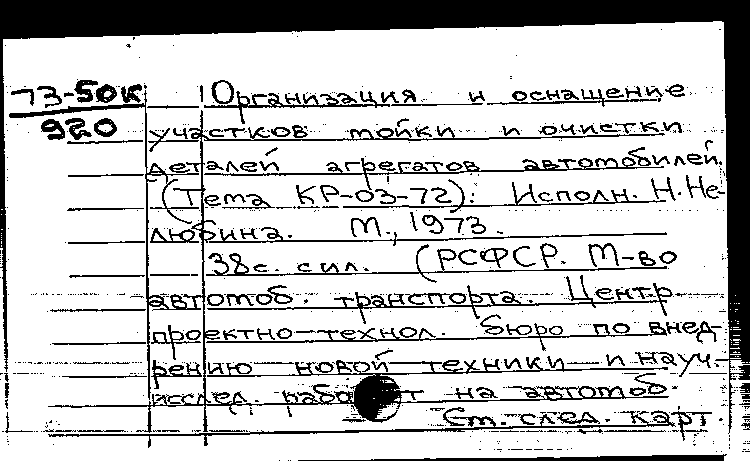 73-50к
920
Организация и оснащение
участков мойки и очистки
деталей агрегатов автомобилей.
(Тема КР-03-72). Исполн. Н. Не-
любина. М., 1973.
38с. с ил. (РСФСР. М-во
автомоб. транспорта. Центр.
проектно-технол. бюро по внед-
рению новой техники и науч.-
исслед. работ на автомоб.
См. след. карт.